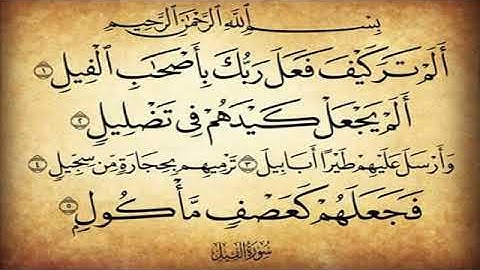 بِسْمِ ٱللَّهِ ٱلرَّحْمَٰنِ ٱلرَّحِيمِ
أَلَمْ تَرَ كَيْفَ فَعَلَ رَبُّكَ بِأَصْحَٰبِ ٱلْفِيلِ ١
أَلَمْ يَجْعَلْ كَيْدَهُمْ فِى تَضْلِيلٍ ٢
وَأَرْسَلَ عَلَيْهِمْ طَيْرًا أَبَابِيلَ ٣ تَرْمِيهِم بِحِجَارَةٍ مِّن سِجِّيلٍ ٤
فَجَعَلَهُمْ كَعَصْفٍ مَّأْكُولٍۭ ٥
سُورَةُ ٱلْفِيلِ